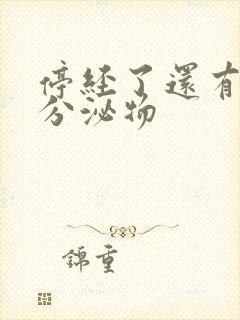 停經了還有
分泌物
錦重